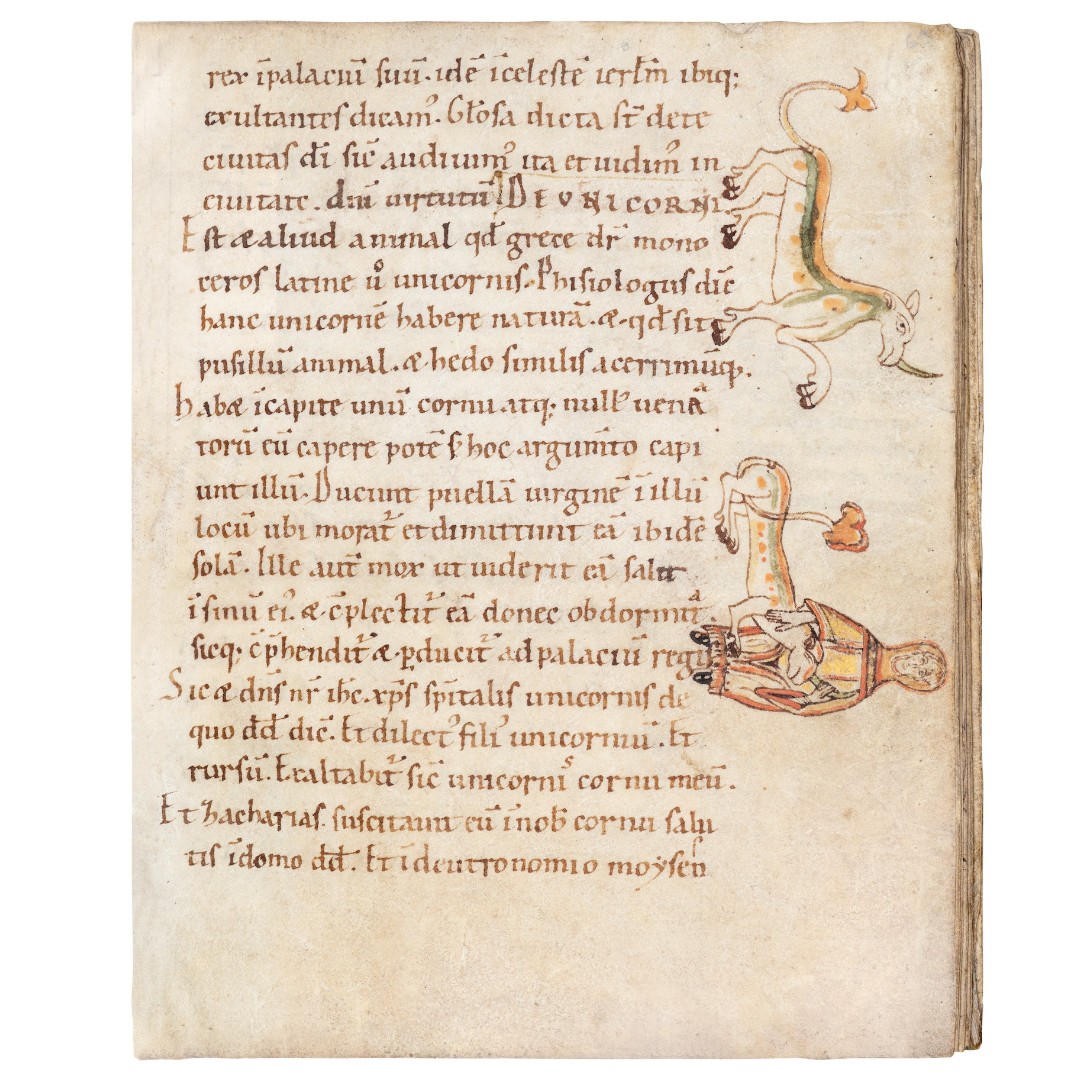 rex īpalaciū suū. idē īcelestē ierłm̄ ibiq;
exultantes dicam᾽. Glosa dicta st̄ dete
ciuitas dī sic̄ audiuim᾽ ita et uidim᾽ in
ciuitate. dn̄i uirtutū DE VNICORNI.
Est æ aliud animal qd̄ grece dr̄ mono
ceros latine ů unicornis. Phisiologus dic̄
hanc unicornē habere naturā. æ. qd̄ sit
pusillū animal. æ hedo similis acerrimūq;.
habæ īcapite unū cornu atq; null᾽ uena
torū eū capere potē s; hoc argum̄to capi
unt illū. Ducunt puellā uirginē ī illū
locū ubi morat᷑ et dimittunt eā ibidē
solā. Ille aut̄ mox ut uiderit eā salit
ī sinū ei᾽. æ c̄plectit᷑ eā donec obdormit.
sicq; c̄p̄hendit᷑ æ ꝑducit᷑ ad palaciū regis
Sic æ dn̄s nr̄ ih̄c. xp̄s sp̄italis unicornis de
quo dd̄ dic̄. Et dilect᾽ fili᾽ unicorniū. Et
rursū. Exaltabit᷑ sic̄ unicornis cornu meū.
Et zacharias. suscitauit eū īnob̄ cornu salu
tis īdomo dd̄. Et īdeutronomio moysen